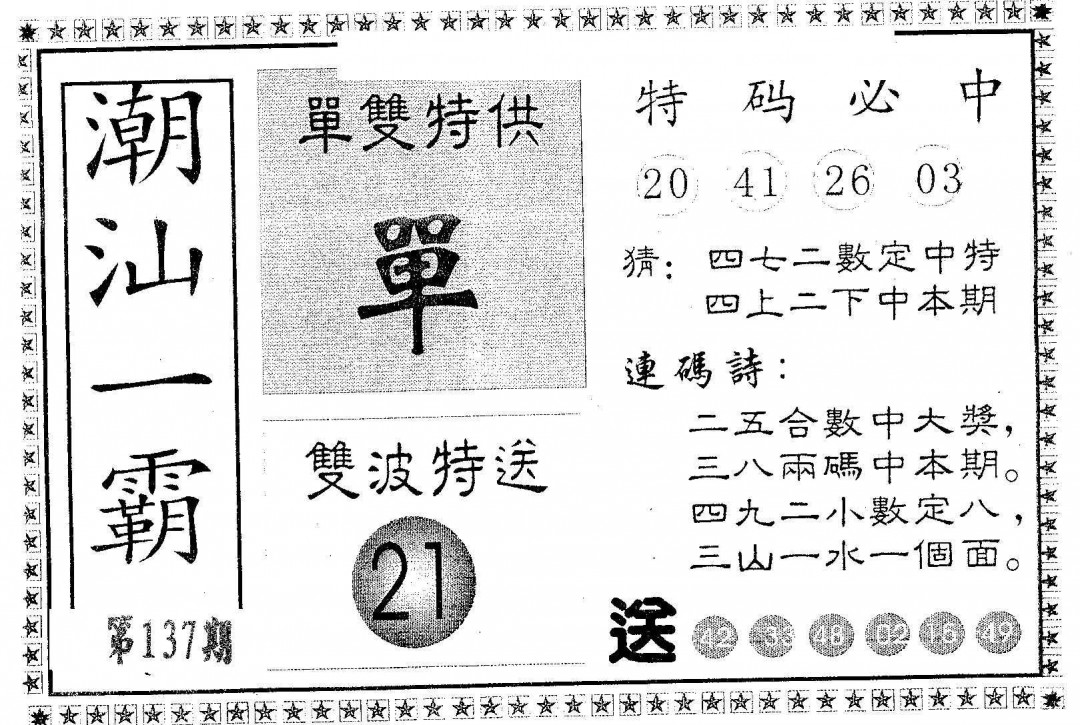 潮汕一霸
第137期
單雙特供
單
雙波特送
21
特码必中
20 41 26 03
猜：四七二數定中特
四上二下中本期
連碼詩：
二五合數中大獎，
三八兩碼中本期。
四九二小數定八，
三山一水一個面。
送 42 33 48 02 16 49